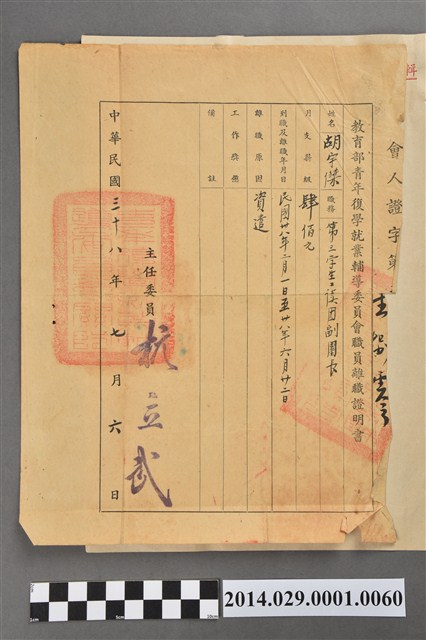 會人證字第
教育部青年復學就業輔導委員會職員離職證明書
姓名 胡宇傑 職務 第三學生工讀團副團長
月支薪級 肆佰元
到職及離職年月日 民國卅八年二月一日至卅八年六月廿二日
離職原因 資遣
工作獎懲
備註
主任委員 杭立武
中華民國三十八年七月六日
2014.029.0001.0060